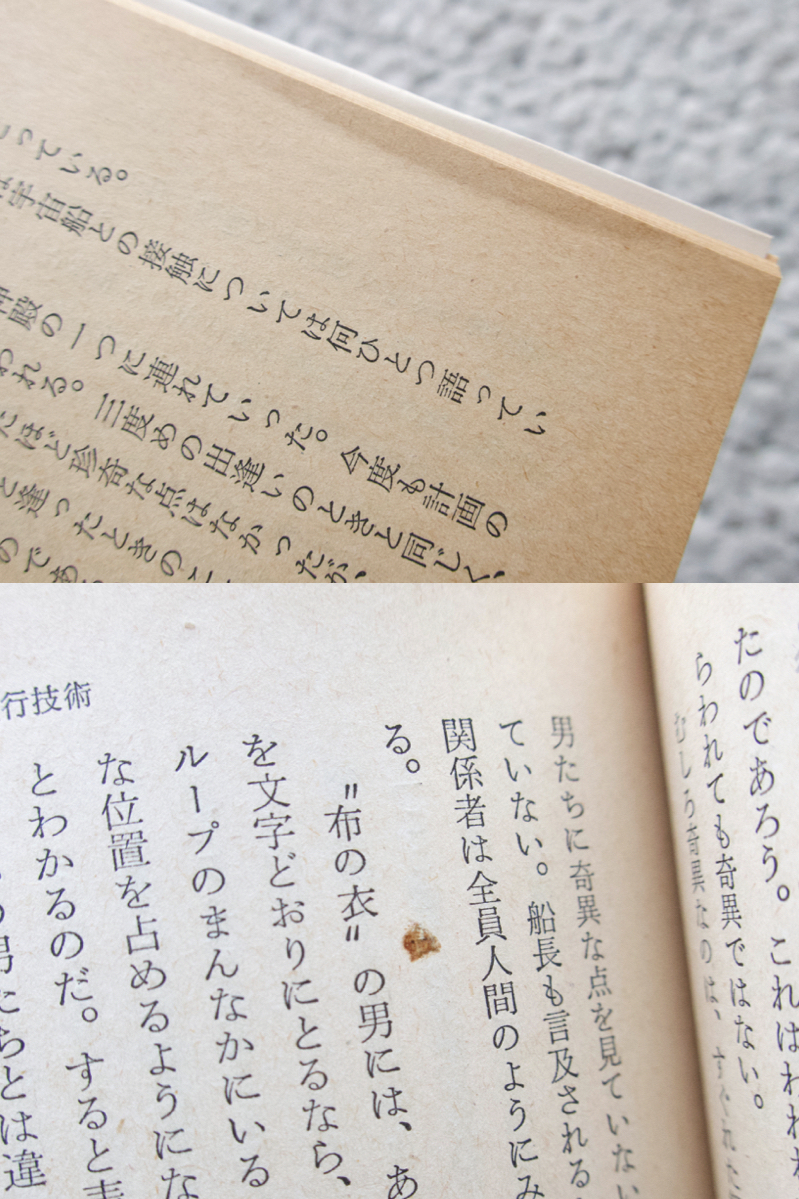 っている。
宇宙船との接触については何ひとつ語ってい
殿の一つに連れていった。今度も計画の
われる。三度めの出逢いのときと同じく、
ほど珍奇な点はなかったが、
と逢ったときのこ
のであ
たのであろう。これはわれわれ
らわれても奇異ではない。
むしろ奇異なのは、すぐれた
男たちに奇異な点を見ていない
ていない。船長も言及される
関係者は全員人間のようにみ
る。
〝布の衣〟の男には、あ
を文字どおりにとるなら、
ループのまんなかにいる
な位置を占めるようにな
とわかるのだ。すると
男たちとは違
行技術